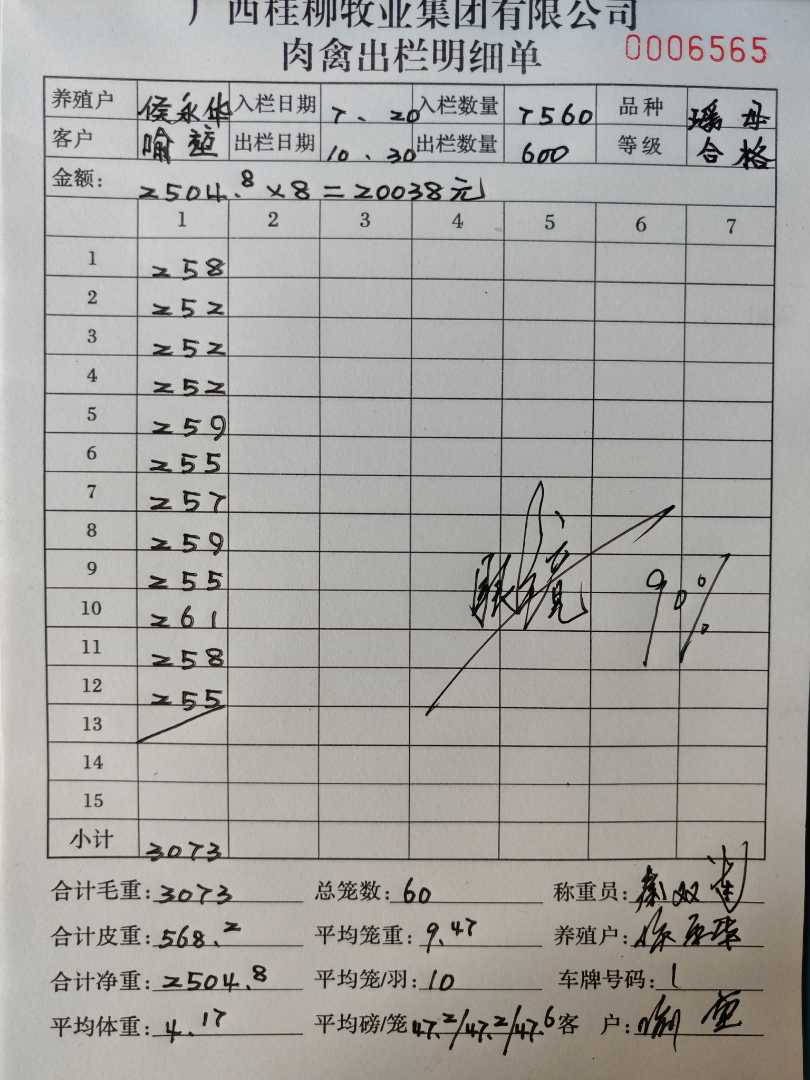 广西桂柳牧业集团有限公司
肉禽出栏明细单 0006565
养殖户 侯永华 入栏日期 7、20 入栏数量 7560 品种 瑶母
客户 喻 出栏日期 10、30 出栏数量 600 等级 合格
金额: 2504.8×8=20038元
1 2 3 4 5 6 7
1 258
2 252
3 252
4 252
5 259
6 255
7 257
8 259
9 255
10 261
11 258
12 255
90%
13
14
15
小计 3073
合计毛重:3073 总笼数:60 称重员:
合计皮重:568.2 平均笼重:9.47 养殖户:
合计净重:2504.8 平均笼/羽:10 车牌号码:1
平均体重:4.17 平均磅/笼 47.2/47.2/47.6 客 户: